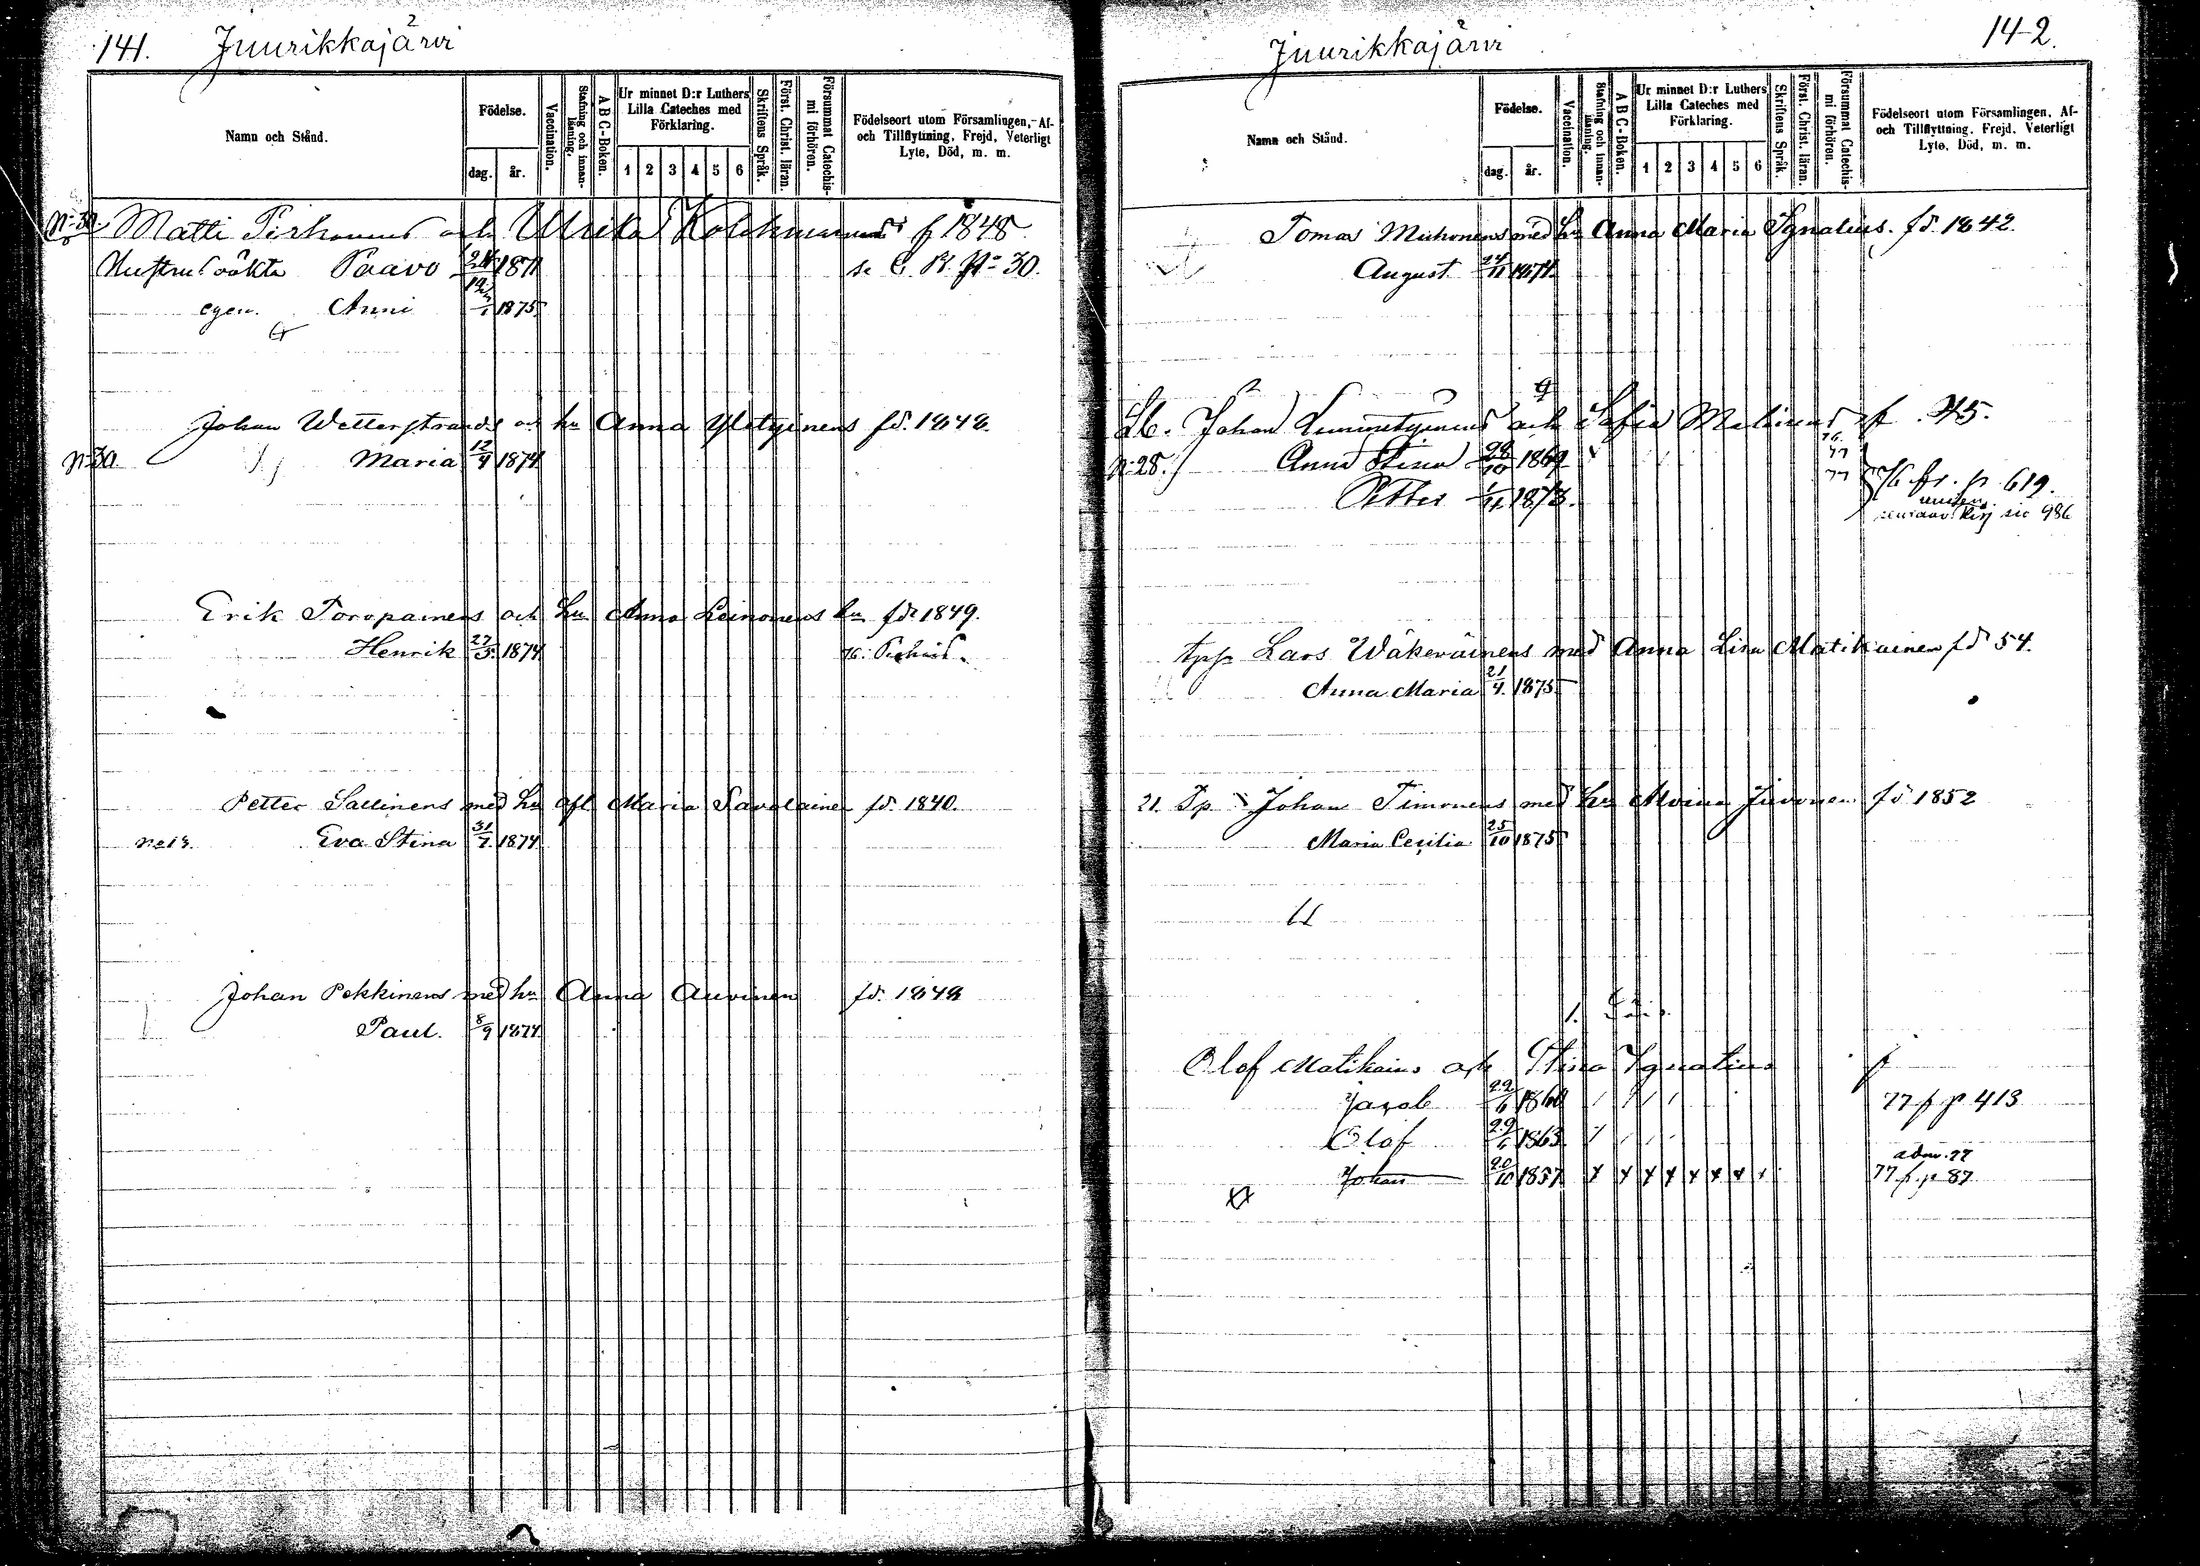 141. Juurikkajärvi 2
Namn och Stånd.
Födelse.
dag.
år.
Vaccination.
Stafning och innanläsning.
A B C-Boken.
Ur minnet D:r Luthers Lilla Cateches med Förklaring.
1 2 3 4 5 6
Skriftens Språk.
Först. Christ. läran.
Försummat Catechismi förhören.
Födelseort utom Församlingen, Af- och Tillflyttning, Frejd, Veterligt Lyte, Död, m. m.
Matti och Ulrika f 1848
Paavo 1871 Nº 30.
egen. Anni 1875
Johan Wetterstrands och hu Anna Yletyinens fd. 1848.
Maria 12/4 1874
Erik Toropainens och hu Anna Leinonens fd. 1849.
Henrik 27/3 1874
Petter Sallinens med hu Maria Savolainen fd. 1840.
no 13. Eva Stina 31/7 1874
Johan Pekkinens med hu Anna Auvinen fd. 1848
Paul. 8/9 1874
142.
Juurikkajärvi 2
Namn och Stånd.
Födelse.
dag.
år.
Vaccination.
Stafning och innanläsning.
A B C-Boken.
Ur minnet D:r Luthers Lilla Cateches med Förklaring.
1 2 3 4 5 6
Skriftens Språk.
Först. Christ. läran.
Försummat Catechismi förhören.
Födelseort utom Församlingen, Af- och Tillflyttning, Frejd, Veterligt Lyte, Död, m. m.
Tomas Muhonens med hu Anna Maria Ignatius. fd. 1842.
August 24/11 1874
Johan och Sofia f. 45.
Nº 28. Anna Stina 28/10 1869 77
Petter 1873. 77 76 fr. p. 619.
986
Lars Wäkeväinens med Anna Lisa Matikainen fd 54.
Anna Maria 21/4 1875
21. Tp. Johan Timonens med hu Juvonen fd 1852
Maria Cecilia 25/10 1875
1.
Olof Matikains och Stina Ignatius f
Jacob 22/6 1860 77 f p 413
Olof 1863
adm. 77
Johan 20/10 1857 x x x x x x x x 77 f. p 87.